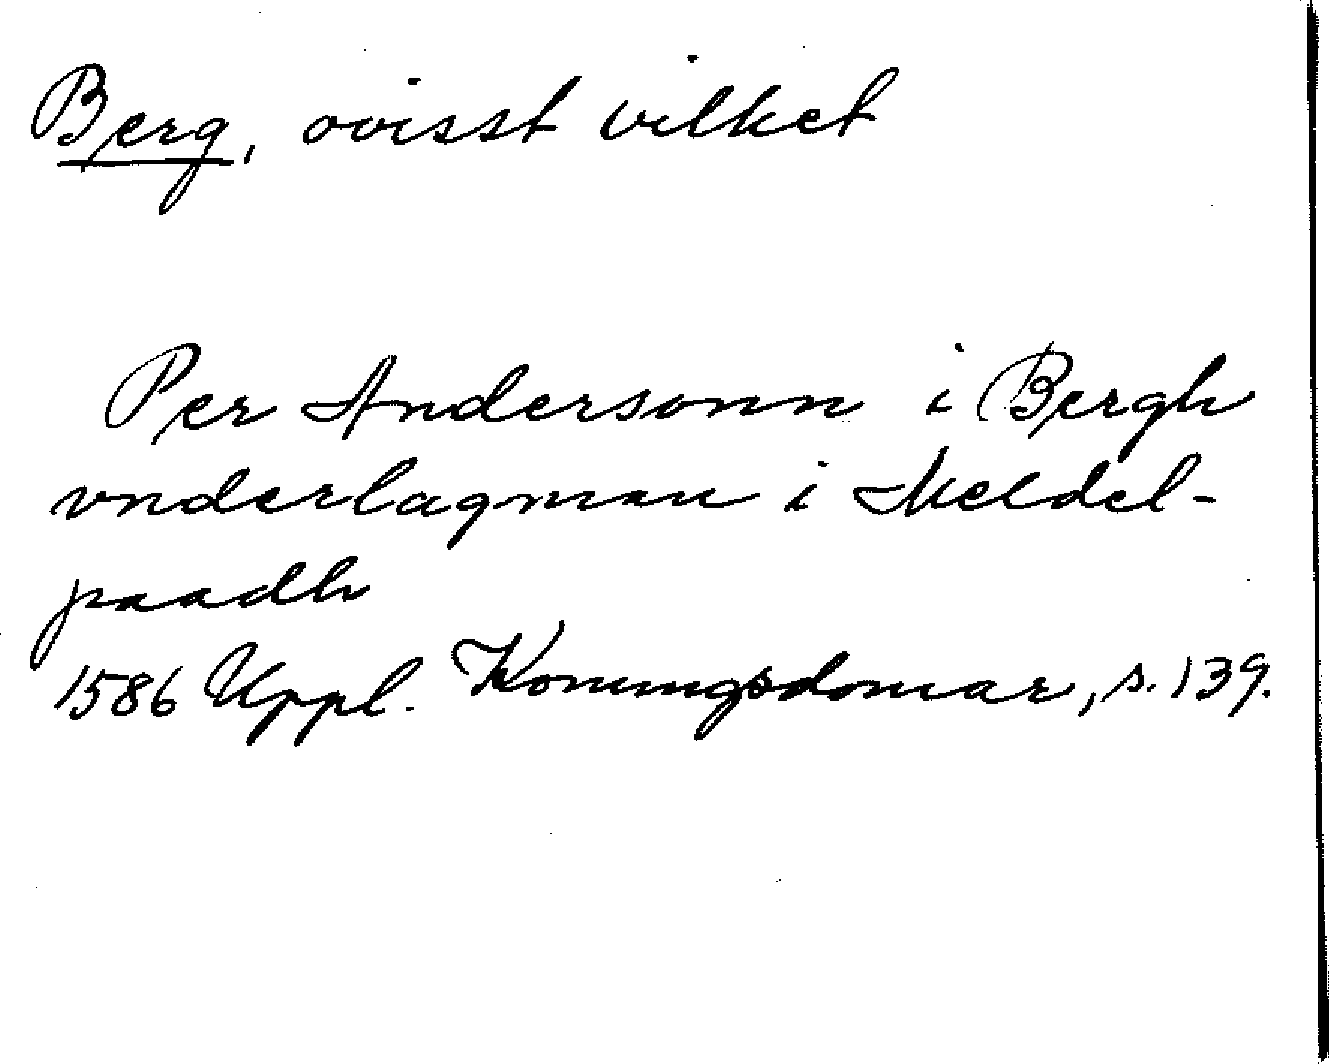 Berg, ovisst vilket
Per Andersonn i Bergh
vnderlagman i Meldel-
paadh
1586 Uppl. Konungsdomar, s. 139.